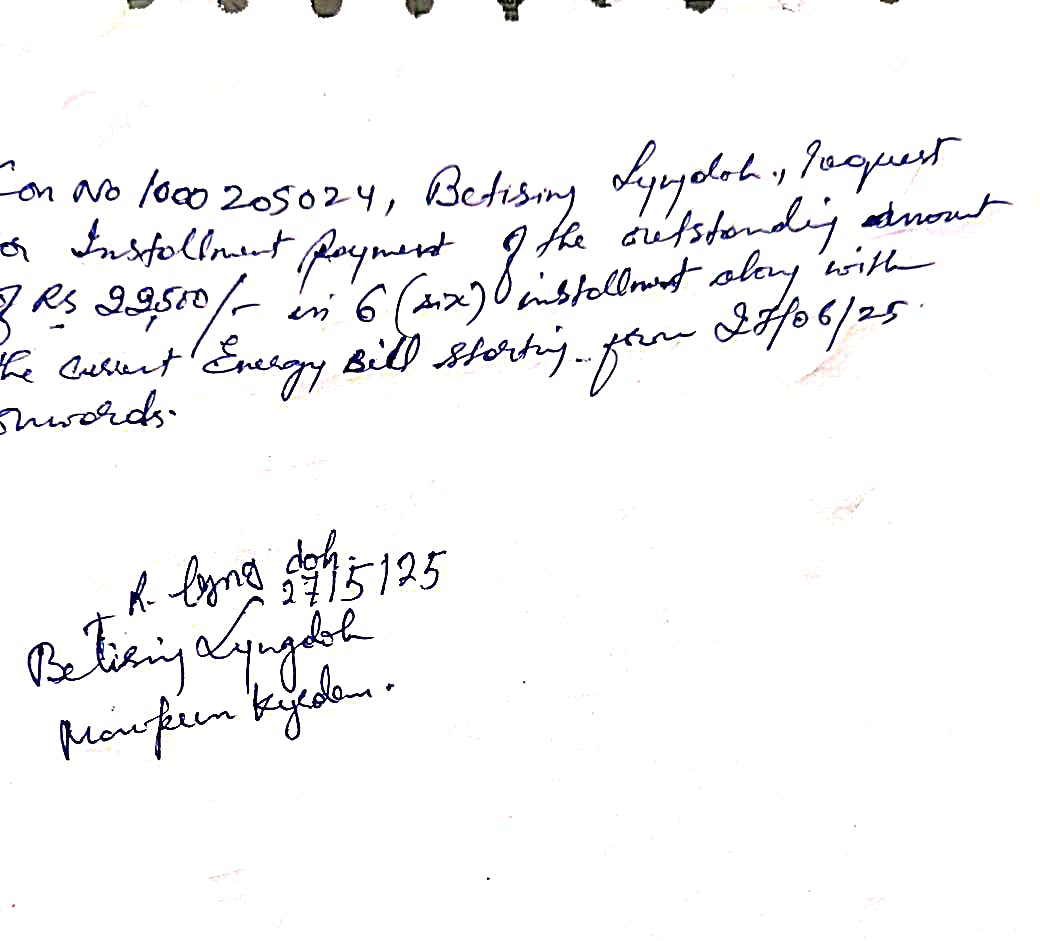 Con No 1000205024, Betising Lyngdoh., request
or Installment payment of the outstanding amount
of Rs 22,500/- in 6 (six) installment along with
the current Energy Bill starting from 27/06/25
onwards.
R. lyng doh.
27/5/25
Betising Lyngdoh
Kyrdem.